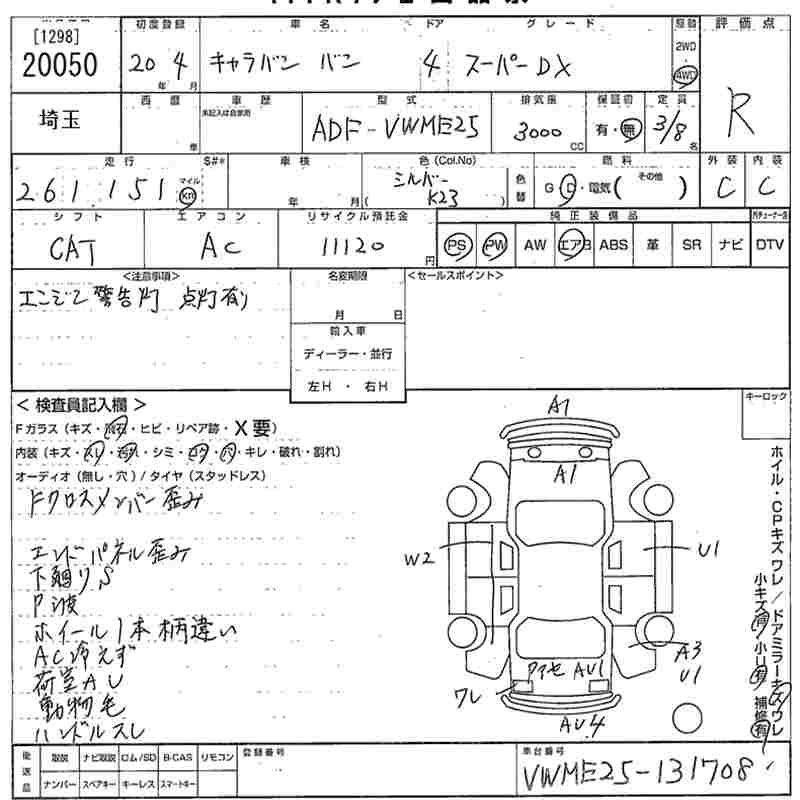 [1298]
20050
初度登録
20 年 4 月
車名
キャラバン バン
ドア
4
グレード
スーパーDX
駆動
2WD
4WD
評価点
R
埼玉
西暦
年
車歴
未記入は自家用
型式
ADF-VWME25
排気量
3000 CC
保証書
有・無
定員
3/8 名
走行
261,151
マイル
km
S#*
車検
年 月
色(Col.No)
シルバー
( K23 )
色替
燃料
G・D・電気( その他 )
外装
C
内装
C
シフト
CAT
エアコン
AC
リサイクル預託金
11120 円
純正装備品
PS PW AW エアB ABS 革 SR ナビ
DTV
<注意事項>
エンジン警告灯 点灯有り
名変期限
月 日
輸入車
ディーラー・並行
左H・右H
<セールスポイント>
<検査員記入欄>
キーロック
Fガラス(キズ・飛石・ヒビ・リペア跡・X要)
オーディオ(無し・穴)/タイヤ(スタッドレス)
Fクロスメンバー歪み
エンドパネル歪み
下廻りS
P波
ホイール1本柄違い
AC冷えず
荷室AU
動物毛
ハンドルスレ
A1
A1
W2
U1
A3
U1
AU1
ワレ
AU4
ホイル・CPキズワレ/ドアミラーキズワレ
小キズ有 小U有 補修有
後返品
取説 ナビ取説 ロム/SD B-CAS リモコン
ナンバー スペアキー キーレス スマートキー
登録番号
車台番号
VWME25-131708